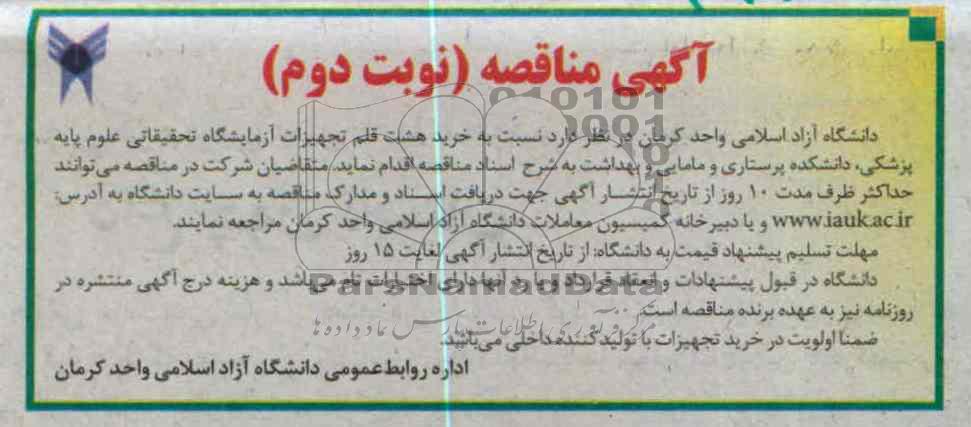 آگهی مناقصه (نوبت دوم)
دانشگاه آزاد اسلامی واحد کرمان در نظر دارد نسبت به خرید هشت قلم تجهیزات آزمایشگاه تحقیقاتی علوم پایه
پزشکی، دانشکده پرستاری و مامایی و بهداشت به شرح اسناد مناقصه اقدام نماید. متقاضیان شرکت در مناقصه می‌توانند
حداکثر ظرف مدت ۱۰ روز از تاریخ انتشار آگهی جهت دریافت اسناد و مدارک مناقصه به سایت دانشگاه به آدرس:
www.iauk.ac.ir و یا دبیرخانه کمیسیون معاملات دانشگاه آزاد اسلامی واحد کرمان مراجعه نمایند.
مهلت تسلیم پیشنهاد قیمت به دانشگاه: از تاریخ انتشار آگهی لغایت ۱۵ روز
دانشگاه در قبول پیشنهادات و انعقاد قرارداد و یا رد آنها دارای اختیارات تام می‌باشد و هزینه درج آگهی منتشره در
روزنامه نیز به عهده برنده مناقصه است.
ضمنا اولویت در خرید تجهیزات با تولید کننده داخلی می‌باشد.
اداره روابط عمومی دانشگاه آزاد اسلامی واحد کرمان
ParsNamadData
مرکز فرآوری اطلاعات پارس نماد داده ها